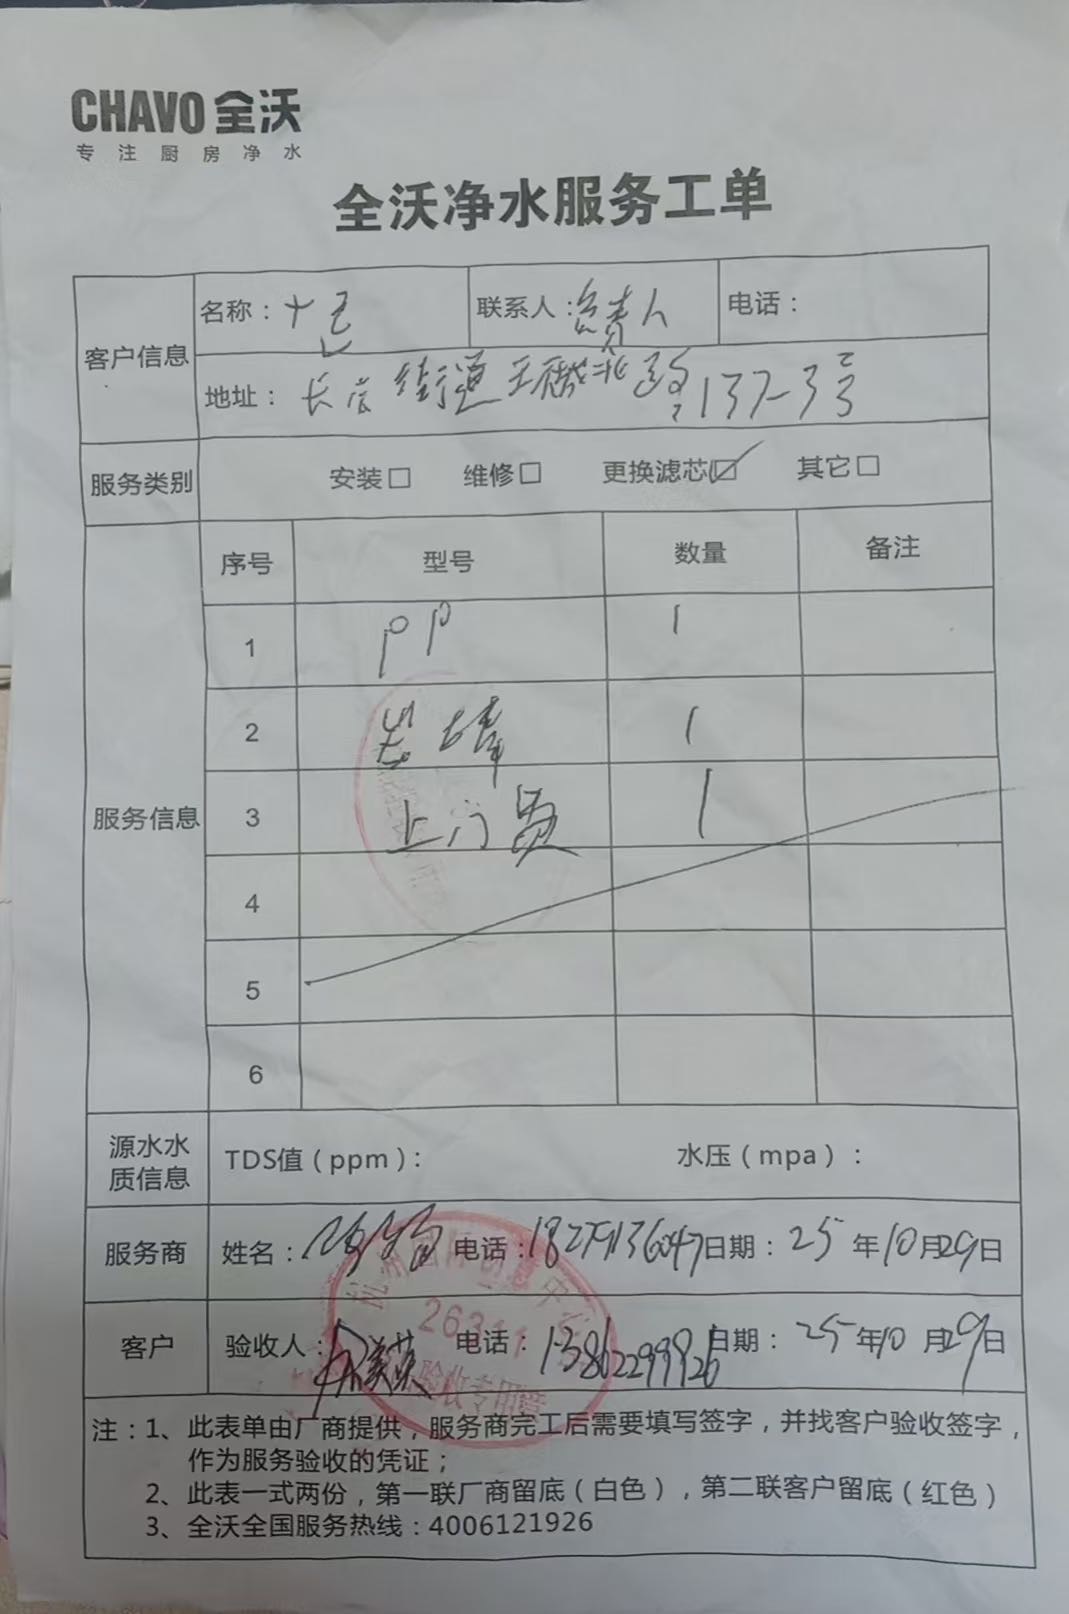 CHAVO 全沃
专注厨房净水
全沃净水服务工单
客户信息
名称：十 联系人：负责人 电话：
地址：长 街道王 北路137-3号
服务类别 安装□ 维修□ 更换滤芯☑ 其它□
服务信息
序号 型号 数量 备注
1 PP 1
2 1
3 上门费 1
4
5
6
源水水质信息 TDS值（ppm）： 水压（mpa）：
服务商 姓名： 电话：18279136047 日期：25年10月29日
客户 验收人： 电话：13862299926 日期：25年10月29日
杭州 中心
26311
验收专用章
注：1、此表单由厂商提供，服务商完工后需要填写签字，并找客户验收签字，
作为服务验收的凭证；
2、此表一式两份，第一联厂商留底（白色），第二联客户留底（红色）
3、全沃全国服务热线：4006121926